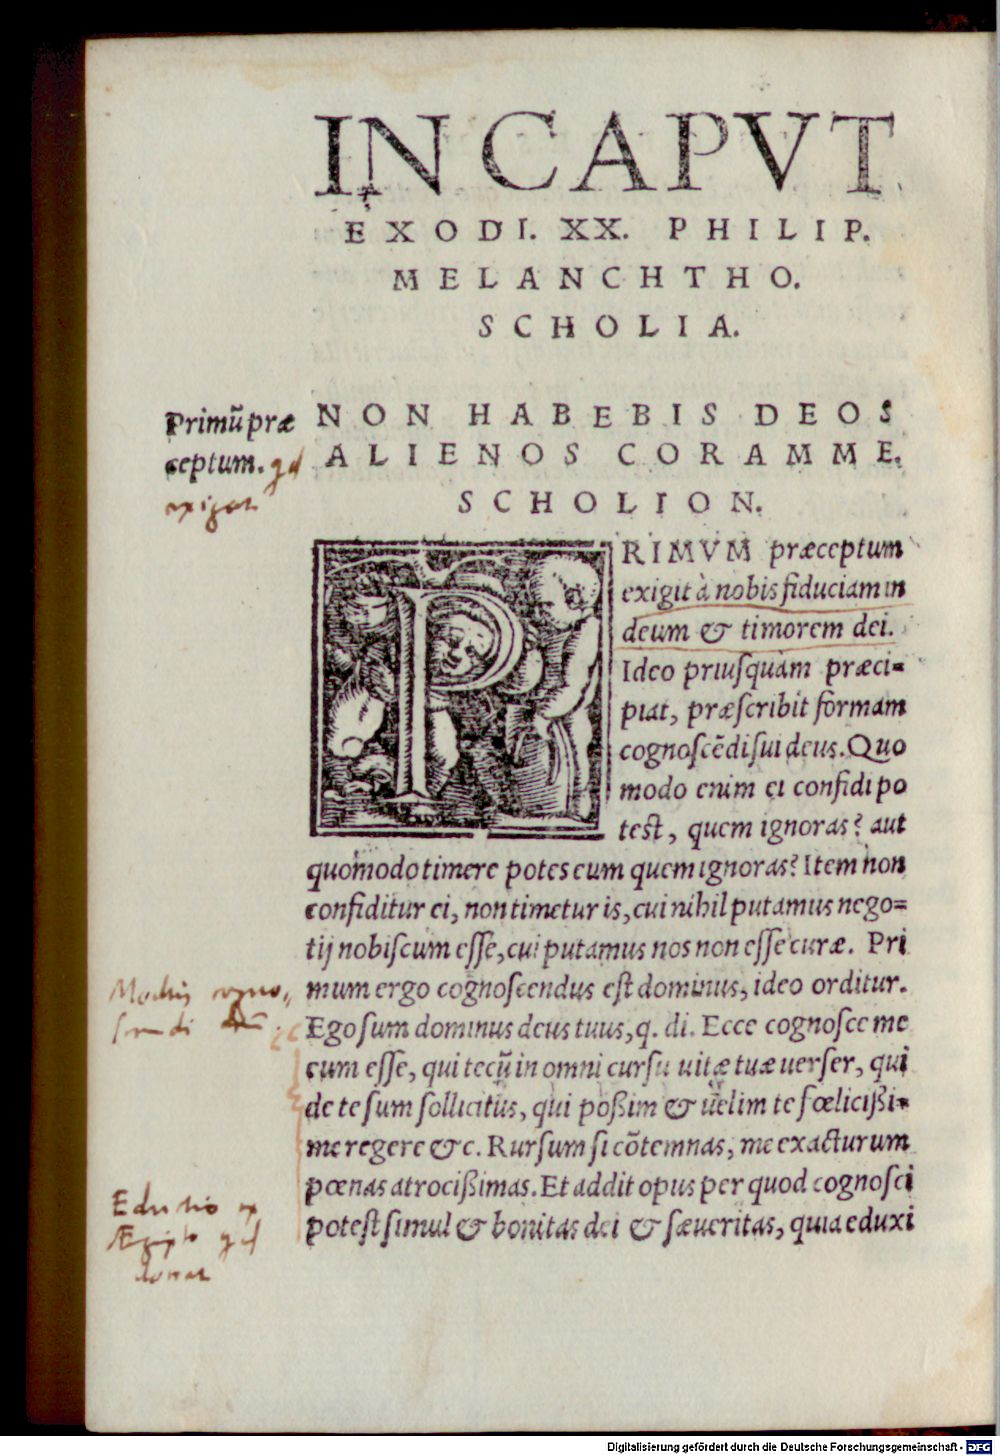 IN CAPVT
EXODI. XX. PHILIP.
MELANCHTHO.
SCHOLIA.
Primũ præ
ceptum. qd
exigat
NON HABEBIS DEOS
ALIENOS CORAM ME.
SCHOLION.
PRIMVM præceptum
exigit à nobis fiduciam in
deum & timorem dei.
Ideo priuſquàm præci=
piat, præſcribit formam
cognoſcẽdi ſui deus. Quo
modo enim ei confidi po
test, quem ignoras? aut
quomodo timere potes eum quem ignoras? Item non
confiditur ei, non timetur is, cui nihil putamus nego=
tij nobiſcum eſſe, cui putamus nos non eſſe curæ. Pri
mum ergo cognoſcendus eſt dominus, ideo orditur.
Ego ſum dominus deus tuus, q. di. Ecce cognoſce me
eum eſſe, qui tecũ in omni curſu uitæ tuæ uerſer, qui
de te ſum ſollicitus, qui poßim & uelim te fœlicißi=
me regere &c. Rurſum ſi cõtemnas, me exacturum
pœnas atrocißimas. Et addit opus per quod cognoſci
poteſt ſimul & bonitas dei & ſæueritas, quia eduxi
Modus cogno„
scendi
Eductio ex
Ægipto qd
Digitalisierung gefördert durch die Deutsche Forschungsgemeinschaft - DFG